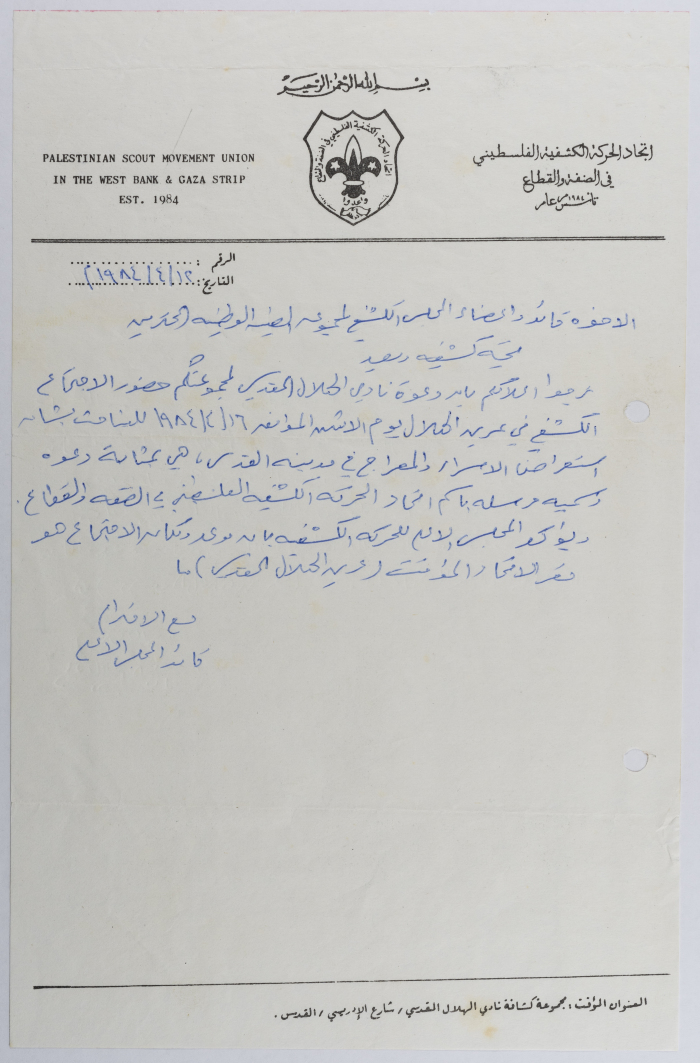 بسم الله الرحمن الرحيم
PALESTINIAN SCOUT MOVEMENT UNION
IN THE WEST BANK & GAZA STRIP
EST. 1984
اتحاد الحركة الكشفية الفلسطينية في الضفة والقطاع
وأعدوا
اتحاد الحركة الكشفية الفلسطيني
في الضفة والقطاع
تأسس عام ١٩٨٤م
الرقم :
التاريخ: ١٢/٤/١٩٨٤
الاخوة قائد واعضاء المجلس الكشفي لمجموعة الوطنيه المحترمين
تحية كشفيه وبعد
نرجوا اعلامكم بان دعوة نادي الهلال المقدسي لمجموعتكم حضور الاجتماع
الكشفي في عرين الهلال يوم الاثنين الموافق ١٦/٤/١٩٨٤ للتباحث بشأن
استعراض الاسراء والمعراج في مدينة القدس، هي بمثابة دعوه
رسميه مرسله باسم اتحاد الحركه الكشفيه الفلسطيني في الضفه والقطاع.
ويؤكد المجلس الاعلى للحركه الكشفيه بان موعد ومكان الاجتماع هو
مقر الاتحاد المؤقت (عرين الهلال المقدسي)
مع الاحترام
قائد المجلس الاعلى
العنوان المؤقت : مجموعة كشافة نادي الهلال القدسي / شارع الإدريسي / القدس .